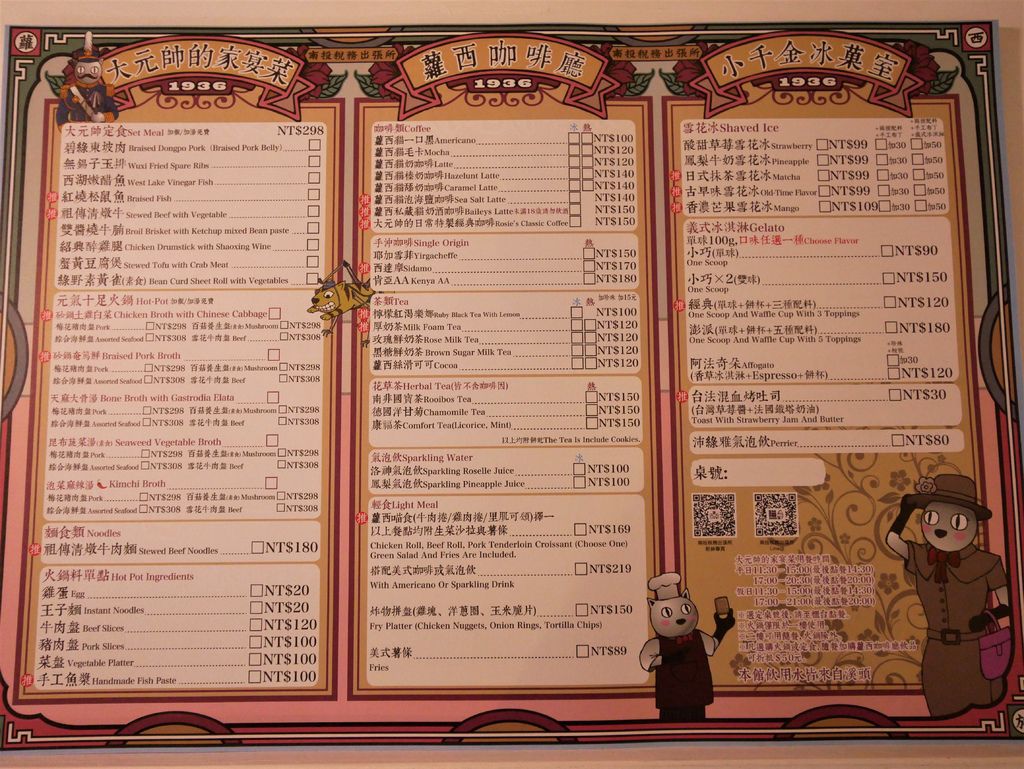 蘿
西
南投稅務出張所
南投稅務出張所
大元帥的家宴菜
1936
大元帥定食Set Meal 加飯/加湯免費 NT$298
碧綠東坡肉 Braised Dongpo Pork (Braised Pork Belly)
無錫子玉排 Wuxi Fried Spare Ribs
西湖嫩醋魚 West Lake Vinegar Fish
推 紅燒松鼠魚 Braised Fish
推 祖傳清燉牛 Stewed Beef with Vegetable
雙醬燒牛腩 Broil Brisket with Ketchup mixed Bean paste
紹興醉雞腿 Chicken Drumstick with Shaoxing Wine
蟹黃豆腐煲 Stewed Tofu with Crab Meat
綠野素黃雀(素食) Bean Curd Sheet Roll with Vegetables
元氣十足火鍋 Hot-Pot 加飯/加湯免費
推 砂鍋土雞白菜 Chicken Broth with Chinese Cabbage
梅花豬肉盤 Pork NT$298 百菇養生盤(素食) Mushroom NT$298
綜合海鮮盤 Assorted Seafood NT$308 雪花牛肉盤 Beef NT$308
推 砂鍋奄篤鮮 Braised Pork Broth
梅花豬肉盤 Pork NT$298 百菇養生盤(素食) Mushroom NT$298
綜合海鮮盤 Assorted Seafood NT$308 雪花牛肉盤 Beef NT$308
天麻大骨湯 Bone Broth with Gastrodia Elata
梅花豬肉盤 Pork NT$298 百菇養生盤(素食) Mushroom NT$298
綜合海鮮盤 Assorted Seafood NT$308 雪花牛肉盤 Beef NT$308
昆布蔬菜湯(素食) Seaweed Vegetable Broth
梅花豬肉盤 Pork NT$298 百菇養生盤(素食) Mushroom NT$298
綜合海鮮盤 Assorted Seafood NT$308 雪花牛肉盤 Beef NT$308
泡菜麻辣湯 Kimchi Broth
梅花豬肉盤 Pork NT$298 百菇養生盤(素食) Mushroom NT$298
綜合海鮮盤 Assorted Seafood NT$308 雪花牛肉盤 Beef NT$308
麵食類 Noodles
推 祖傳清燉牛肉麵 Stewed Beef Noodles NT$180
火鍋料單點 Hot Pot Ingredients
雞蛋 Egg NT$20
王子麵 Instant Noodles NT$20
牛肉盤 Beef Slices NT$120
豬肉盤 Pork Slices NT$100
菜盤 Vegetable Platter NT$100
推 手工魚漿 Handmade Fish Paste NT$100
蘿西咖啡廳
1936
咖啡類Coffee 冰 熱
蘿西貓一口黑Americano NT$100
蘿西貓毛卡Mocha NT$120
蘿西貓奶咖啡Latte NT$120
蘿西貓榛奶咖啡Hazelunt Latte NT$140
蘿西貓矯奶咖啡Caramel Latte NT$140
推 蘿西貓泡海鹽咖啡Sea Salt Latte NT$140
推 蘿西貓私藏貓奶酒咖啡Baileys Latte未滿18歲請勿飲酒 NT$150
推 大元帥的日常特製經典咖啡Rosie's Classic Coffee NT$150
手沖咖啡Single Origin 熱
耶加雪菲Yirgacheffe NT$150
推 西達摩Sidamo NT$170
肯亞AA Kenya AA NT$180
茶類Tea 冰 熱 加珍珠 加15元
推 檸檬紅渴樂娜Ruby Black Tea With Lemon NT$100
推 厚奶茶Milk Foam Tea NT$120
玫瑰鮮奶茶Rose Milk Tea NT$120
黑糖鮮奶茶 Brown Sugar Milk Tea NT$120
蘿西絲滑可可Cocoa NT$120
花草茶Herbal Tea(皆不含咖啡因) 熱
南非國寶茶Rooibos Tea NT$150
德國洋甘菊Chamomile Tea NT$150
康福茶Comfort Tea(Licorice, Mint) NT$150
以上均附餅乾The Tea Is Include Cookies.
氣泡飲Sparkling Water 冰
洛神氣泡飲Sparkling Roselle Juice NT$100
鳳梨氣泡飲Sparkling Pineapple Juice NT$100
輕食Light Meal
推 蘿西喵食(牛肉捲/雞肉捲/里肌可頌)擇一
以上餐點均附生菜沙拉與薯條 NT$169
Chicken Roll, Beef Roll, Pork Tenderloin Croissant (Choose One)
Green Salad And Fries Are Included.
搭配美式咖啡或氣泡飲 NT$219
With Americano Or Sparkling Drink
炸物拼盤(雞塊、洋蔥圈、玉米脆片) NT$150
Fry Platter (Chicken Nuggets, Onion Rings, Tortilla Chips)
美式薯條 NT$89
Fries
小千金冰菓室
1936
雪花冰Shaved Ice
酸甜草莓雪花冰Strawberry NT$99 加30 加50
鳳梨牛奶雪花冰Pineapple NT$99 加30 加50
推 日式抹茶雪花冰Matcha NT$99 加30 加50
推 古早味雪花冰Old-Time Flavor NT$99 加30 加50
推 香濃芒果雪花冰 Mango NT$109 加30 加50
義式冰淇淋Gelato
單球100g,口味任選一種Choose Flavor
小巧(單球) NT$90
One Scoop
小巧×2(雙球) NT$150
One Scoop
推 經典(單球+餅杯+三種配料) NT$120
One Scoop And Waffle Cup With 3 Toppings
澎派(單球+餅杯+五種配料) NT$180
One Scoop And Waffle Cup With 5 Toppings
阿法奇朵Affogato 加30
(香草冰淇淋+Espresso+餅杯) NT$120
推 台法混血烤吐司 NT$30
(台灣草莓醬+法國鐵塔奶油)
Toast With Strawberry Jam And Butter
沛綠雅氣泡飲Perrier NT$80
桌號:
大元帥的家宴菜用餐時間
平日11:30~15:00(最後點餐14:30)
17:00~20:30(最後點餐20:00)
假日11:30~15:00(最後點餐14:30)
17:00~21:00(最後點餐20:00)
本館飲用水皆來自溪頭